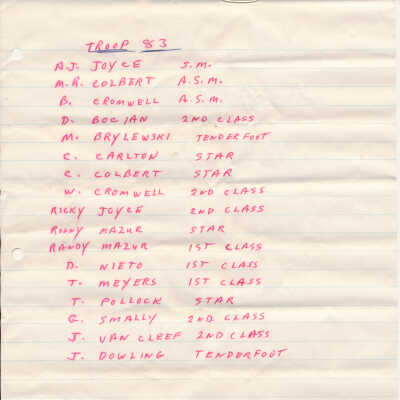 TROOP 83
A.J. JOYCE S.M.
M.R. COLBERT A.S.M.
B. CROMWELL A.S.M.
D. BOCIAN 2ND CLASS
M. BRYLEWSKI TENDERFOOT
C. CARLTON STAR
C. COLBERT STAR
W. CROMWELL 2ND CLASS
RICKY JOYCE 2ND CLASS
MAZUR STAR
RANDY MAZUR 1ST CLASS
D. NIETO 1ST CLASS
T. MEYERS 1ST CLASS
T. POLLOCK STAR
G. SMALLY 2ND CLASS
J. VAN CLEEF 2ND CLASS
J. DOWLING TENDERFOOT